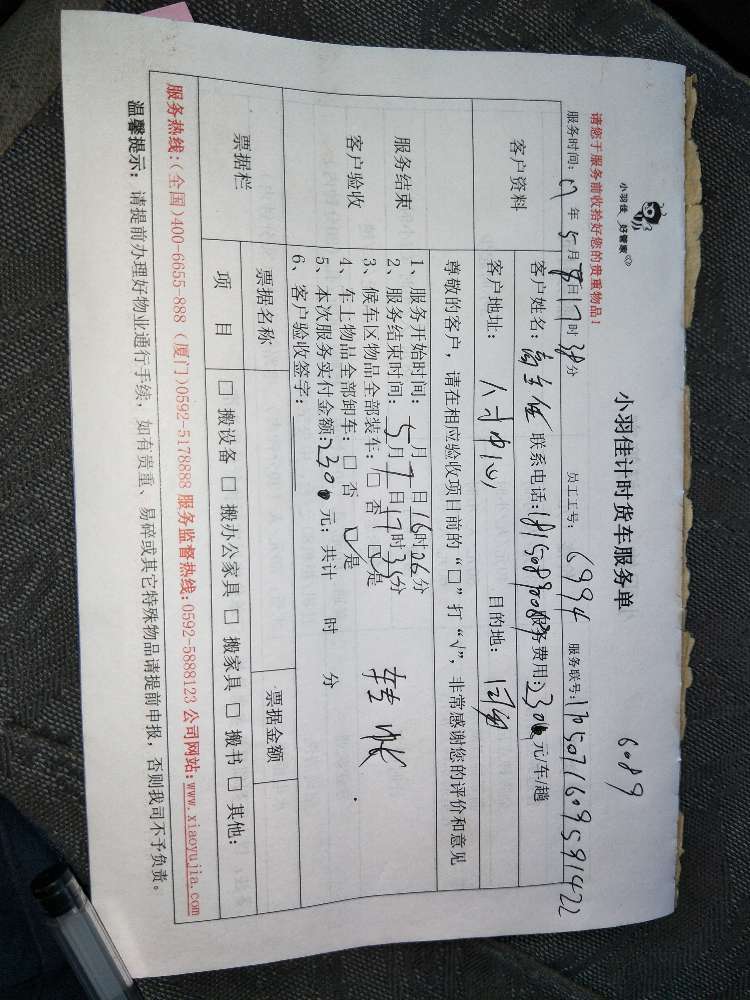 小羽佳 好管家
小羽佳计时货车服务单
6089
请您于服务前收拾好您的贵重物品！
服务时间：17年5月7日17时38分 员工工号：6994 服务联号：170507160959142²
客户资料
客户姓名： 联系电话： 服务费用：230元/车/趟
客户地址： 人才中心 目的地： 同安
尊敬的客户，请在相应验收项目前的“□”打“√”，非常感谢您的评价和意见
服务结束
客户验收
1、服务开始时间： 月 日16时06分
2、服务结束时间：5月7日17时35分
3、候车区物品全部装车：□ 否 ☑是
4、车上物品全部卸车：□ 否 ☑是
5、本次服务实付金额：230元；共计 时 分
6、客户验收签字：
转帐
票据栏
票据名称 票据金额
项 目 □ 搬设备 □ 搬办公家具 □ 搬家具 □ 搬书 □ 其他：
服务热线：(全国)400-6655-888 (厦门)0592-5178888 服务监督热线：0592-5888123 公司网站：www.xiaoyujia.com
温馨提示：请提前办理好物业通行手续，如有贵重、易碎或其它特殊物品请提前申报，否则我司不予负责。